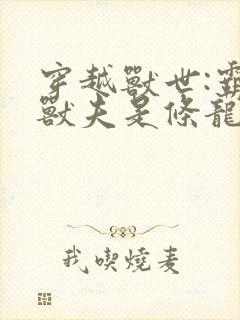 穿越獸世:霸
獸夫是條龍
我喫燒麦